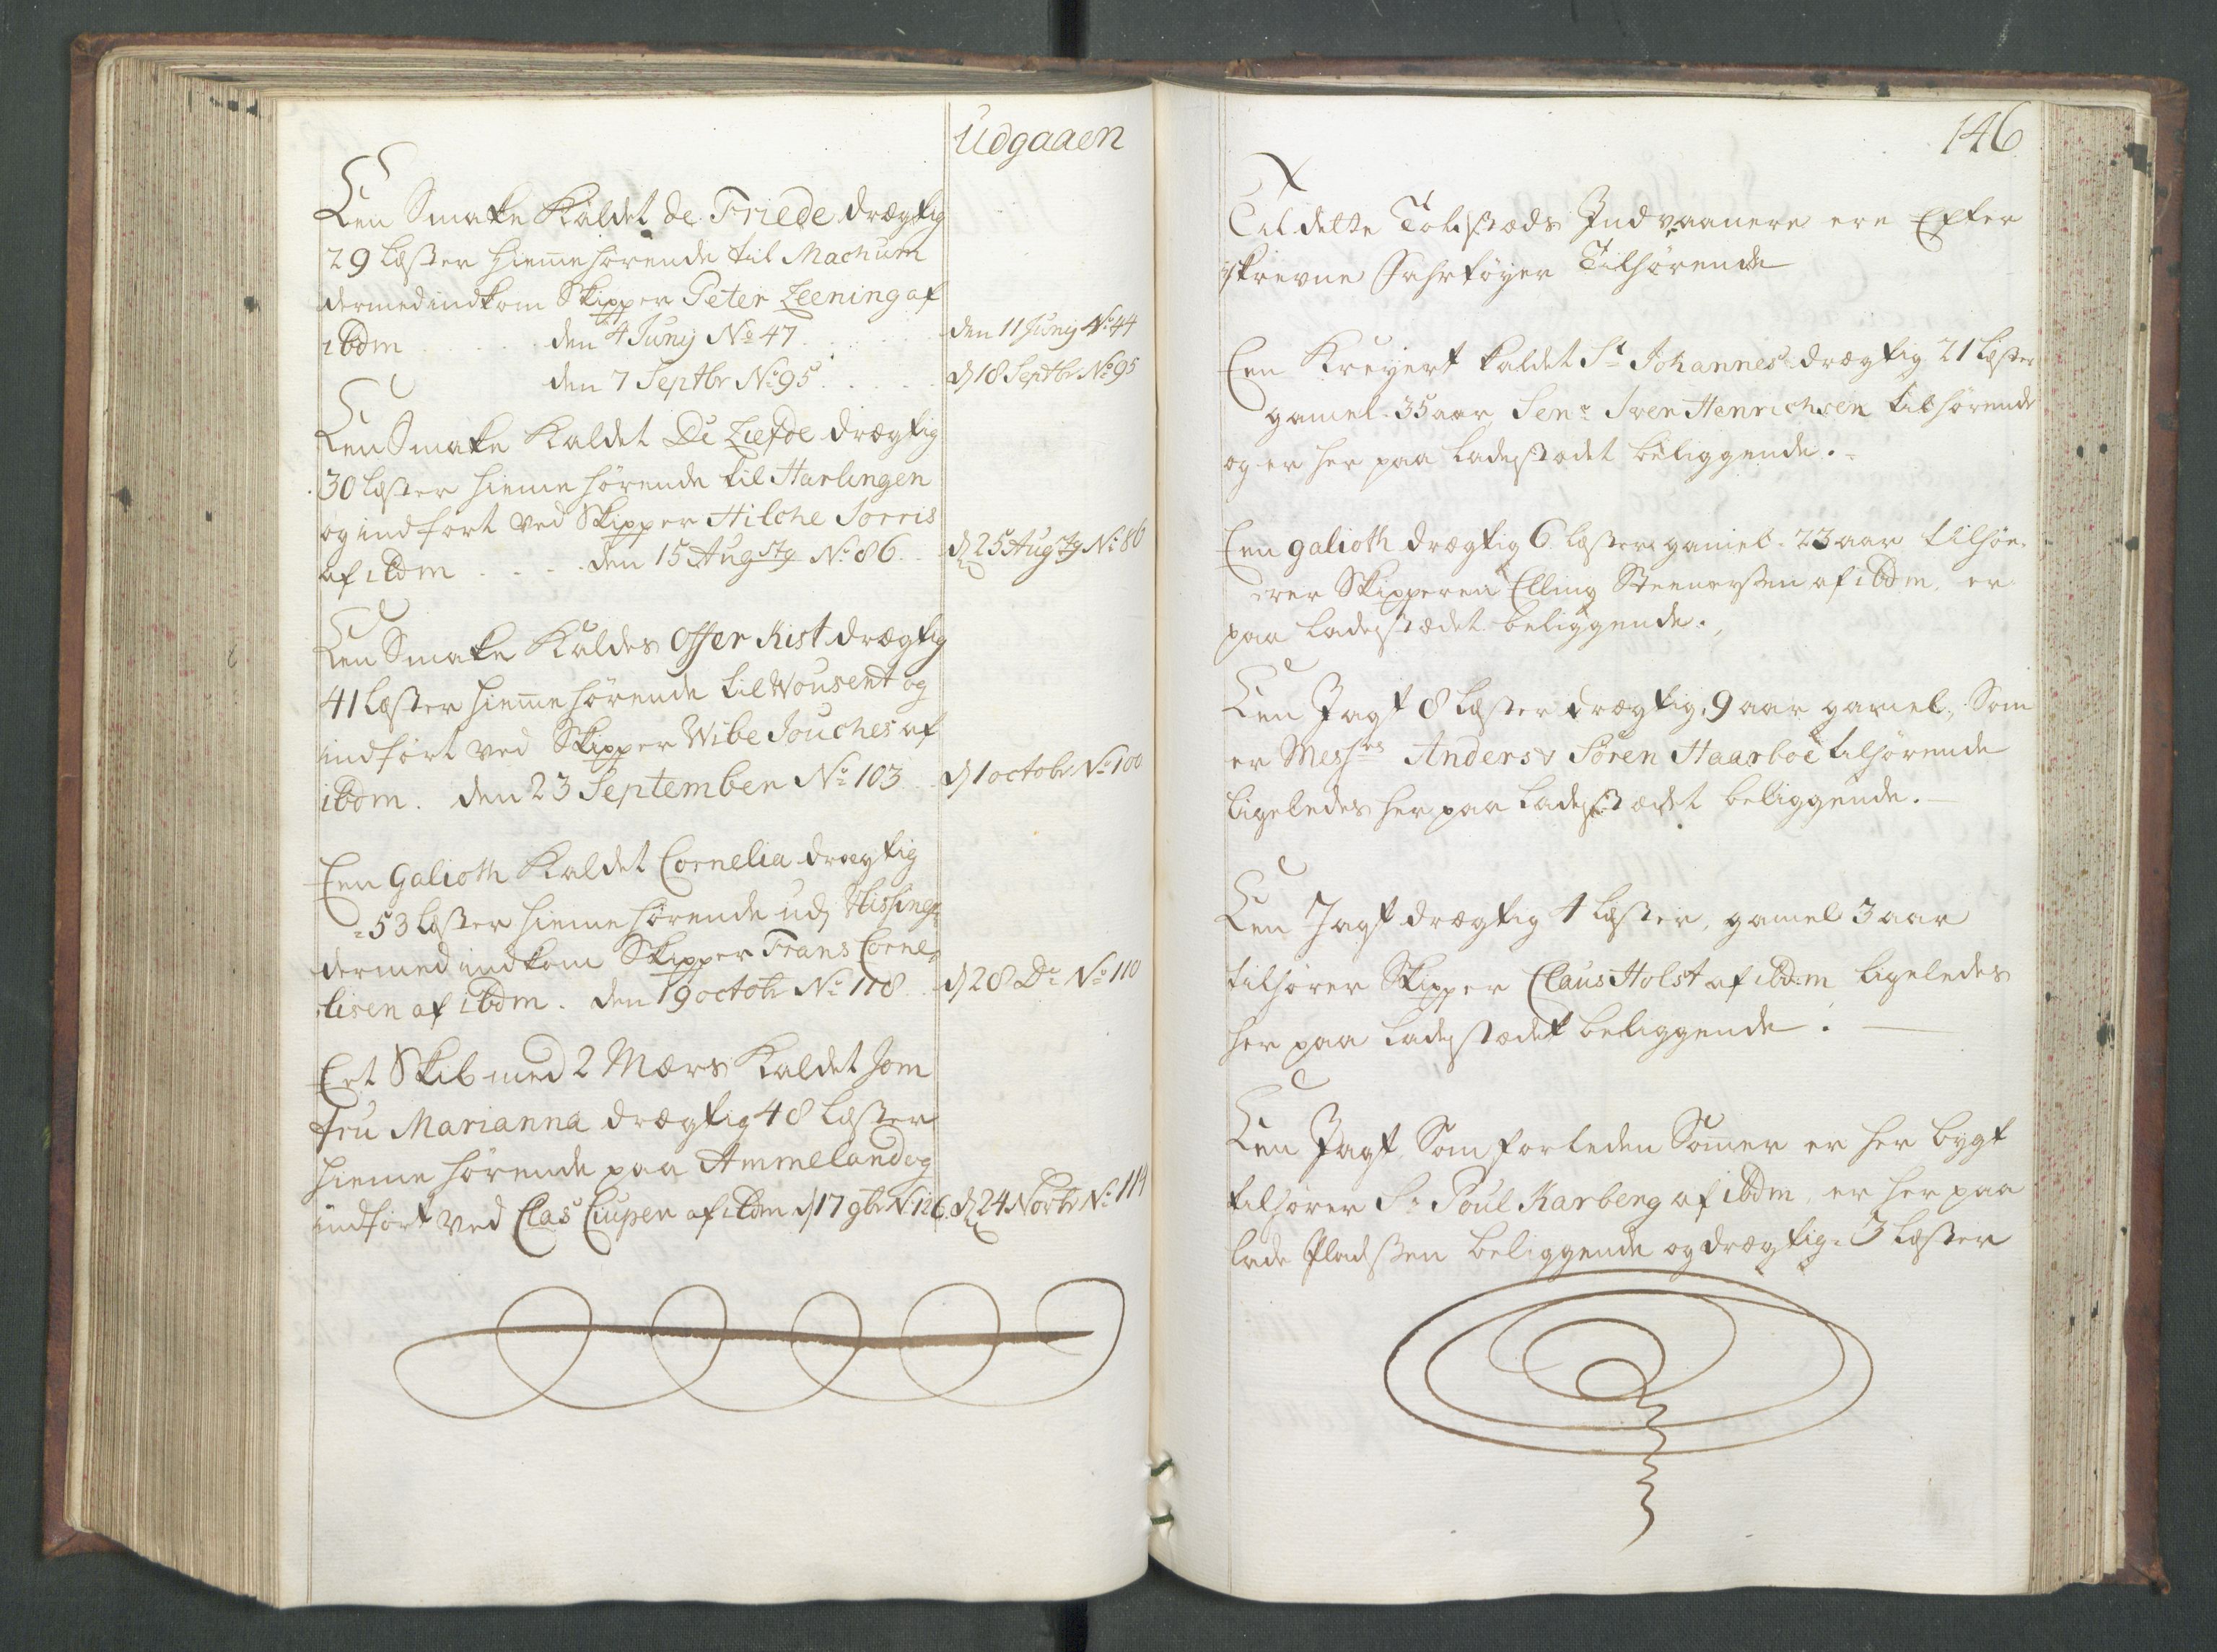 Udgaaen
Een Smake Kaldet de Friede drægtig
29 læster hiemehørende til Machum
dermed indkom Skipper Peter Leening af
ibdm . . . . . den 4 Junij No 47 . . . . . . den 11 Junij No 44
den 7 Septbr No 95 . . . . . d 18 Septbr No 95
Een Smake Kaldet De Liefde drægtig
30 læster hieme hørende til Harlingen
og indført ved Skipper Hilche Jorris
af ibdm . . . . den 15 Augstg No 86 . . d 25 Augstg No 86
Een Smake Kaldes Offer Kist drægtig
41 læster hieme hørende til Wousent og
indført ved Skipper Wibe Jouches af
ibdm. den 23 September No 103 d 1 octobr No 100
Een Galioth Kaldet Cornelia drægtig
53 læster hieme hørende udj
dermed indkom Skipper Frans Corne-
lisen af ibdm. den 19 octobr No 118 . . d 28 Do No 110
Eet Skib med 2 Mærs Kaldet Jom
fru Marianna drægtig 48 læster
hieme hørende paa Ammeland og
indført ved Clas Cuper af ibdm d 17 9br No 126 d 24 Novbr No 114
146
Til dette Toldstæds Indvaanere ere Efter
skrevne Fahrtøyer Tilhørende
Een Kreyert kaldet St Johannes drægtig 21 læster
gamel 35 aar, Senr Iver Henrichsen tilhørende
og er her paa ladestædet beliggende.
Een galioth drægtig 6 læster gamel 23 aar tilhø-
rer Skipperen Elling Steenersen af ibdm, er
paa ladestædet beliggende.
Een Jagt 8 læster drægtig, 9 aar gamel, Som
er Messrs Anders & Søren Haarboe tilhørende
ligeledes her paa ladestædet beliggende.
Een Jagt drægtig 4 læster, gamel 3 aar
tilhører Skipper Claus Holst af ibdm ligeledes
her paa ladestædet beliggende.
Een Jagt Som forleden Somer er her bygt
tilhører Sr Poul Karberg af ibdm, er her paa
lade Pladsen beliggende og drægtig 3 læster